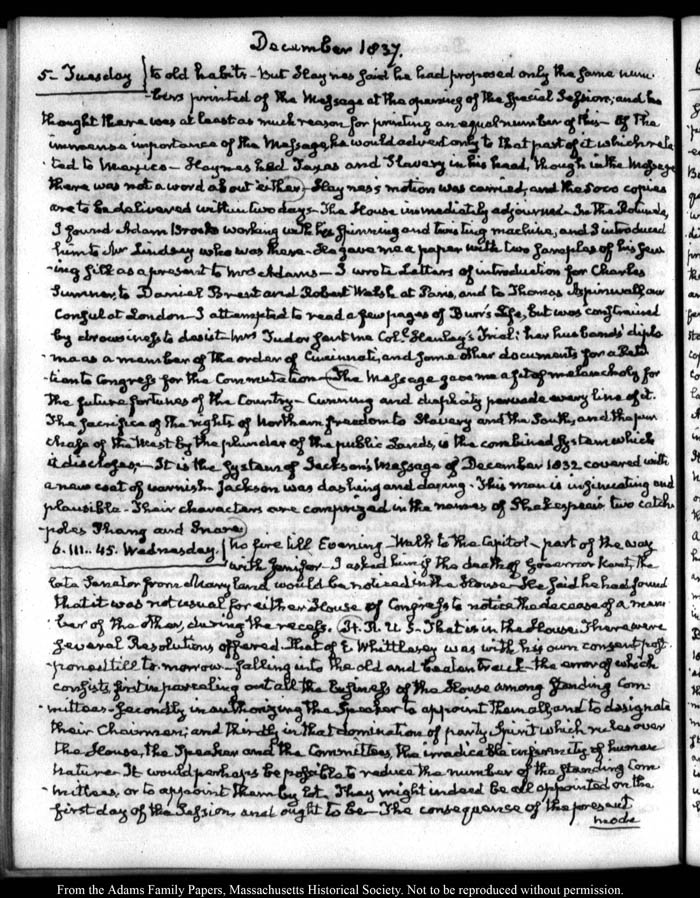 December 1837.
5- Tuesday to old habits - But Haynes said he had proposed only the same num-
-bers printed of the Message at the opening of the Special Session; and he
thought there was at least as much reason for printing an equal number of this - Of the
immense importance of the Message, he would advert only to that part of it which rela-
ted to Mexico - Haynes had Texas and Slavery in his head, though in the Message
there was not a word about either - Haynes's motion was carried, and the copies
are to be delivered within two days - The House immediately adjourned - In the Rotunda,
I found Adam Brooks working with his spinning and twisting machine, and I introduced
him to Mr Lindsey who was there - He gave me a paper with two samples of his sew-
-ing silk as a present to Mrs Adams - I wrote Letters of introduction for Charles
Sumner, to Daniel Brent and Robert Walsh at Paris, and to Thomas Aspinwall, our
Consul at London - I attempted to read a few pages of Burr's Life, but was constrained
by drowsiness to desist - Mrs Tudor sent me Coll. Henley's Trial; her husband's diplo-
ma as a member of the order of Cincinnati, and some other documents for a Peti-
-tion to Congress for the Commutation - The Message gave me a fit of melancholy for
the future fortunes of the Country - Cunning and duplicity pervade every line of it.
The sacrifice of the rights of Northern freedom to Slavery and the South, and the pur-
chase of the West by the plunder of the public Lands, is the combined system which
it discloses - It is the system of Jackson's Message of December 1832 covered with
a new coat of varnish - Jackson was dashing and daring - This man is insinuating and
plausible - Their characters are comprized in the names of Shakespear's two catch-
-poles Phang and Snare
6. III. 45. Wednesday. No fire till Evening - Walk to the Capitol - part of the way
with Jenifer - I asked him if the death of Governor Kent, the
late Senator from Maryland would be noticed in the House - He said he had found
that it was not usual for either House of Congress to notice the decease of a mem-
ber of the other, during the recess. H. R. U. S - That is in the House. There were
several Resolutions offered - That of E Whittlesey was with his own consent post-
poned till to-morrow - falling into the old and beaten track - the error of which
consists, first in parcelling out all the business of the House among standing Com-
mittees - secondly in authorizing the Speaker to appoint them all, and to designate
their Chairmen; and thirdly in that domination of party Spirit which rules over
the House, the Speaker and the Committees, the irradicable infirmity of human
nature - It would perhaps be possible to reduce the number of the standing Com-
-mittees, or to appoint them by lot. They might indeed be all appointed on the
first day of the Session, and ought to be - The consequence of the present
mode
From the Adams Family Papers, Massachusetts Historical Society. Not to be reproduced without permission.